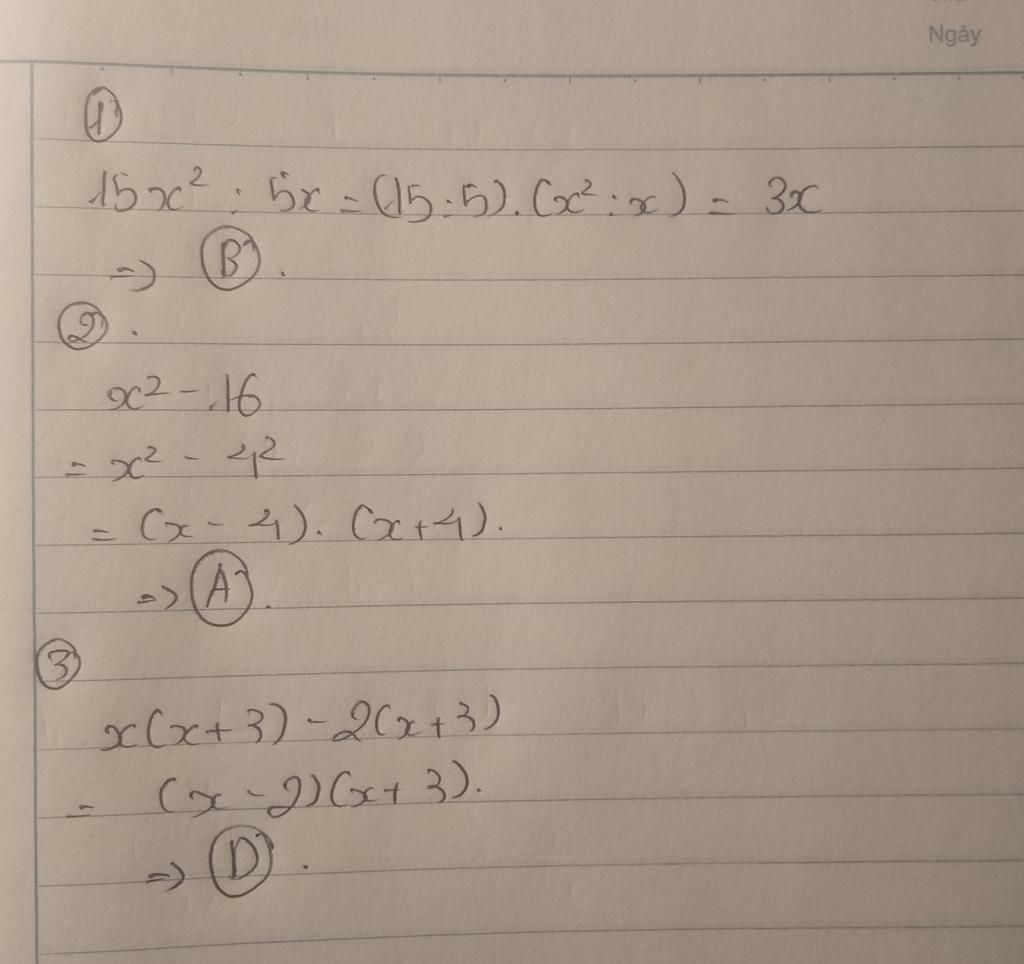 Ngày
①
15x² : 5x = (15:5).(x²:x) = 3x
=> Ⓑ.
②.
x² - 16
= x² - 4²
= (x - 4).(x+4).
=> Ⓐ.
③
x(x+3) - 2(x+3)
= (x - 2)(x+3).
=> Ⓓ.